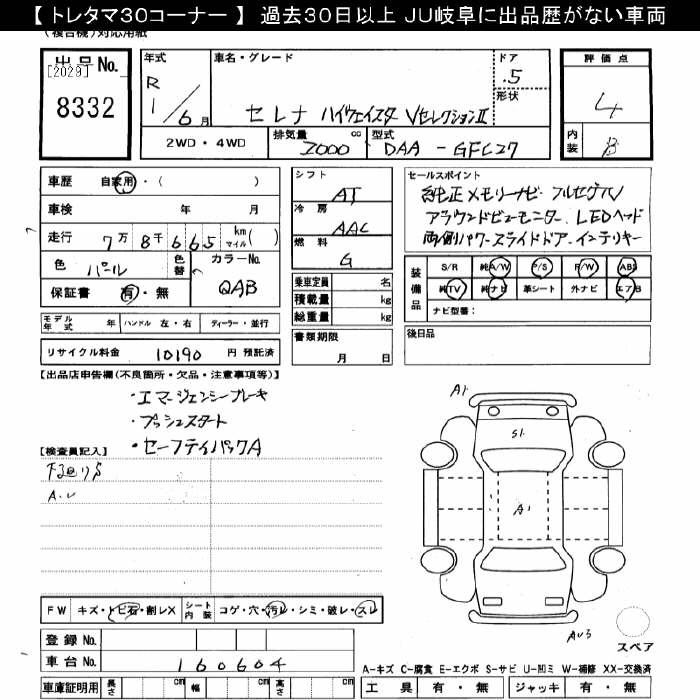 【 トレタマ30コーナー 】 過去30日以上 JU岐阜に出品歴がない車両
(複合機)対応用紙
出品No.
[2029]
8332
年式
R 1/6月
車名・グレード
セレナ ハイウェイスターVセレクションⅡ
ドア
.5
形状
2WD・4WD
排気量
2000
cc
型式
DAA-GFC27
評価点
4
内装
B
車歴 自家用・( )
車検 年 月
走行 7万8千665 km マイル( )
色 パール 色替
カラーNo.
QAB
保証書 有・無
シフト
AT
冷房
AAC
燃料
G
乗車定員 名
積載量 kg
総重量 kg
セールスポイント
純正メモリーナビ フルセグTV
アラウンドビューモニター、LEDヘッド
両側パワースライドドア、インテリキー
装備品
S/R 純A/W P/S F/W ABS
純TV 純ナビ 革シート 外ナビ エアB
ナビ型番:
モデル年式 年 ハンドル 左・右 ディーラー・並行
書類期限
月 日
後日品
リサイクル料金 10190 円 預託済
【出品店申告欄(不良箇所・欠品・注意事項等)】
・エマージェンシーブレーキ
・プッシュスタート
・セーフティパックA
【検査員記入】
下廻りS
A.U
A1
S1
A1
AU3
スペア
FW キズ・トビ石・割レX
シート内装 コゲ・穴・汚レ・シミ・破レ・スレ
登録No.
車台No. 160604
車庫証明用 長さ cm 幅 cm 高さ cm
A-キズ C-腐食 E-エクボ S-サビ U-凹ミ W-補修 XX-交換済
工具 有・無 ジャッキ 有・無